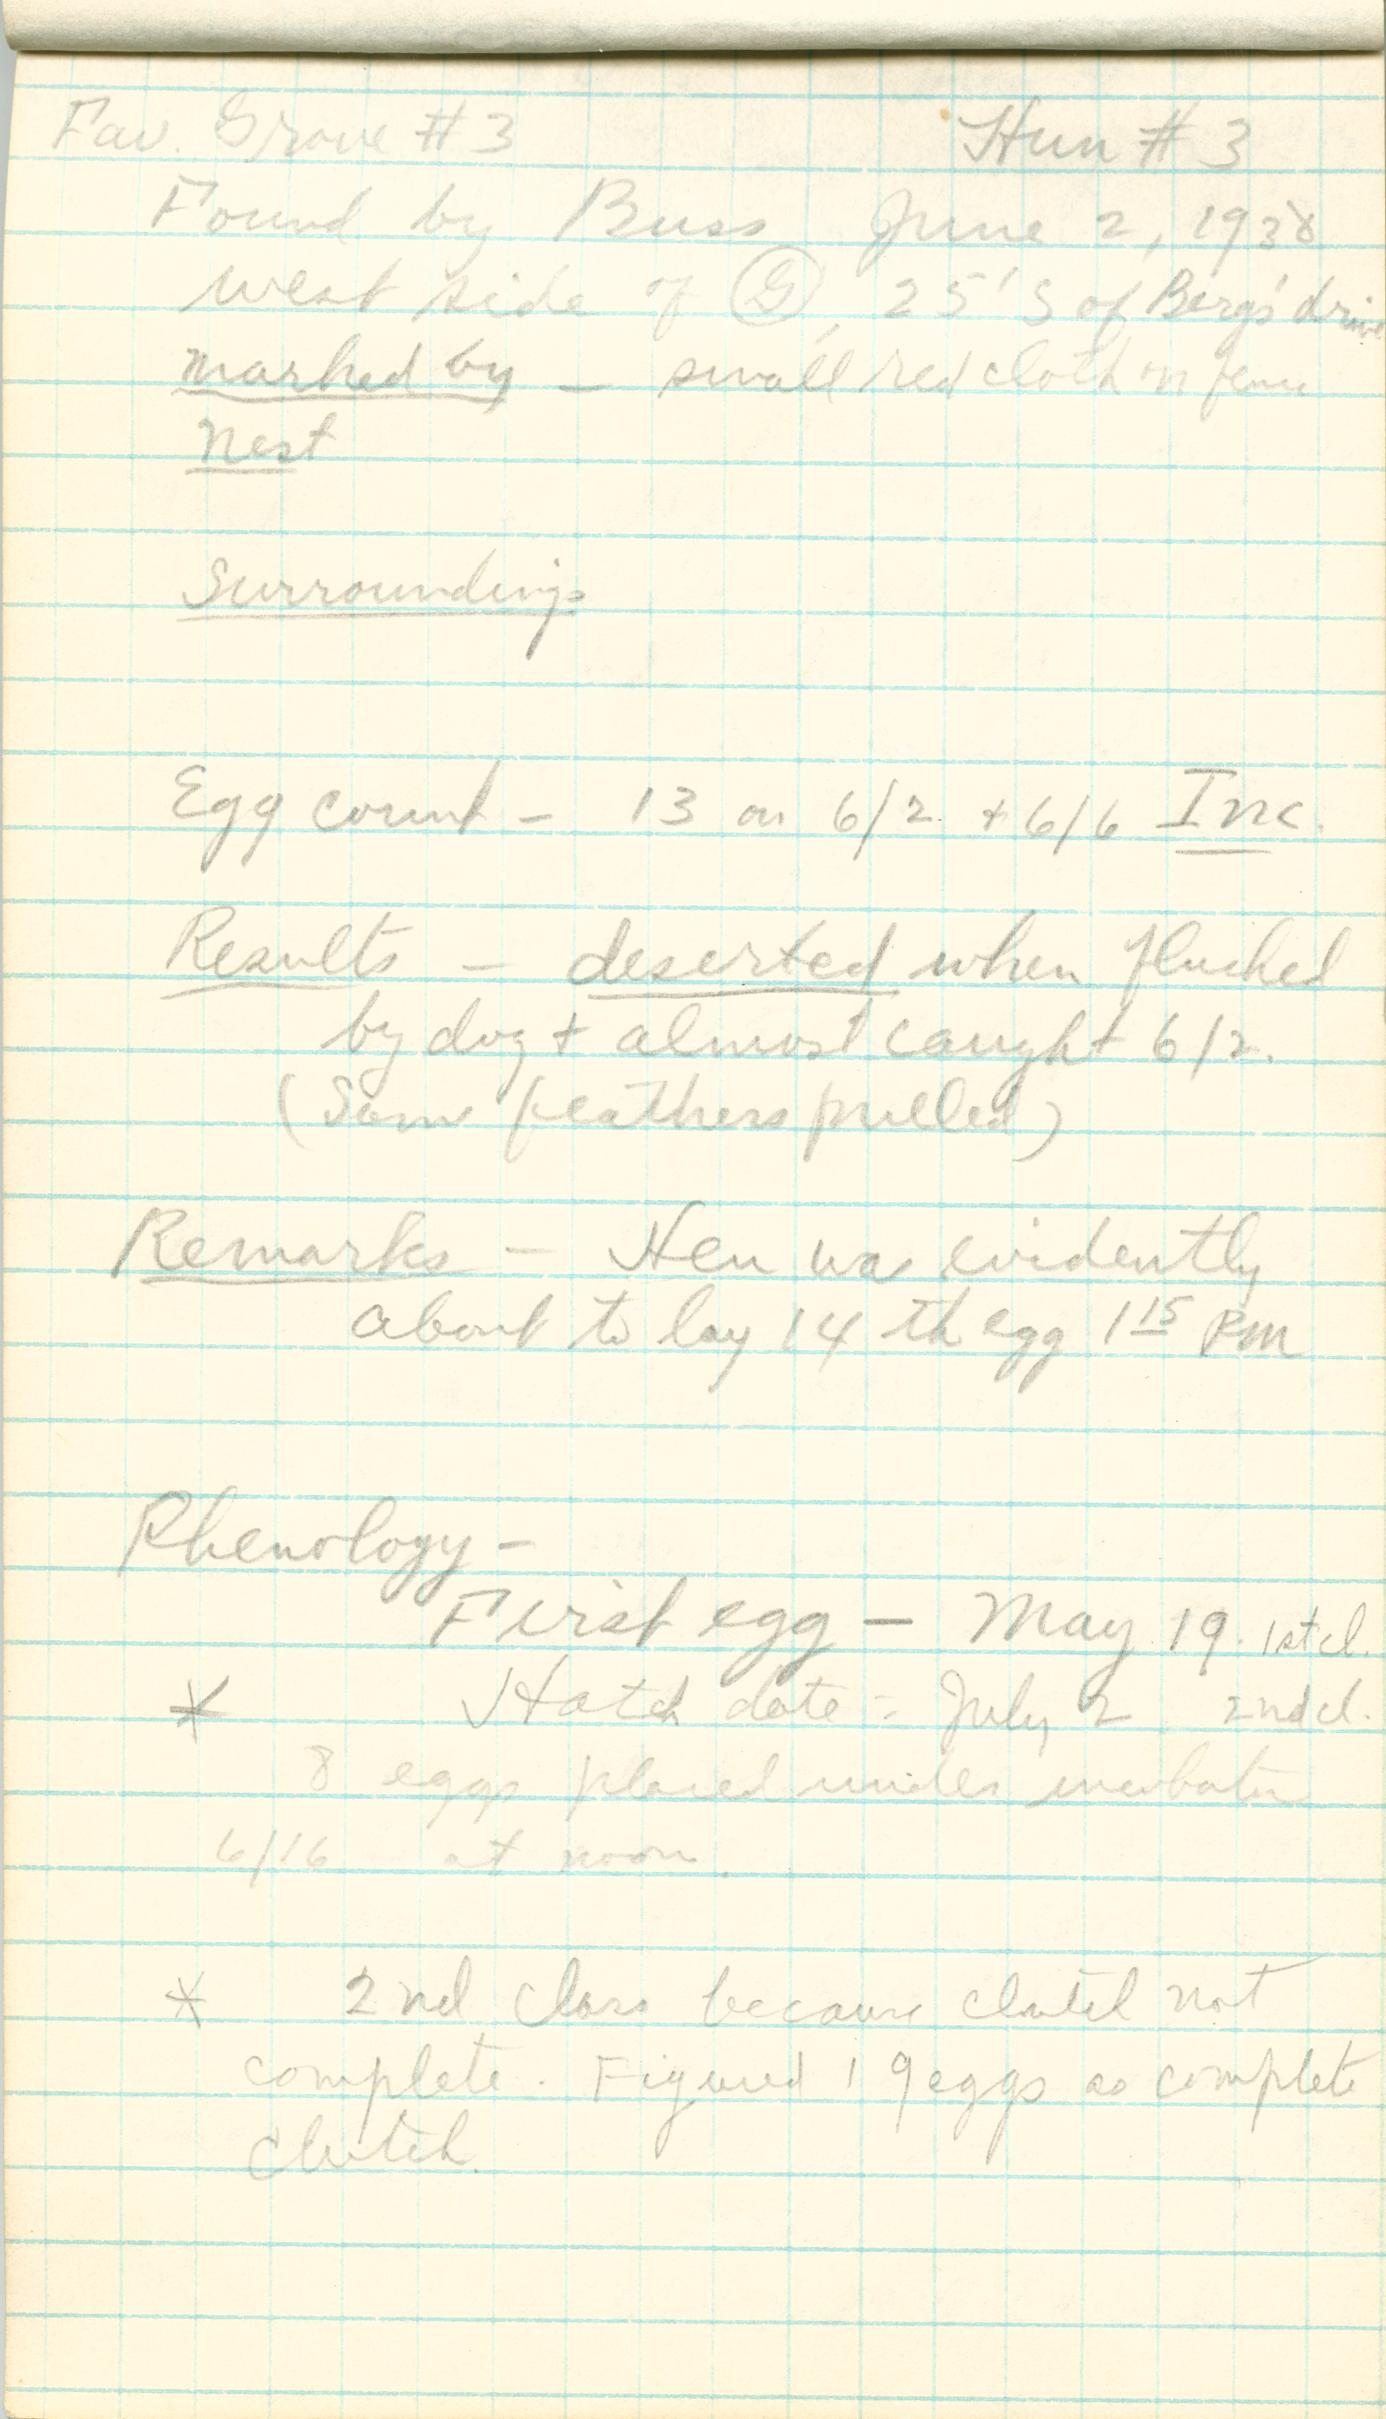 Fav. Grove # 3 Hun # 3
Found by Buss June 2, 1938
west side of G, 25' S of Berg's drive
marked by – small red cloth on fence
Nest
Surroundings
Egg count – 13 on 6/2 + 6/6 Inc.
Results – deserted when flushed
by dog + almost caught 6/2.
(Some feathers pulled)
Remarks – Hen was evidently
about to lay 14th egg 1 15 PM
Phenology –
First egg – May 19. 1st cl.
* Hatch date = July 2 2nd cl.
8 eggs placed under incubator
6/16 at noon.
* 2nd class because clutch not
complete. Figured 19 eggs as complete
clutch.